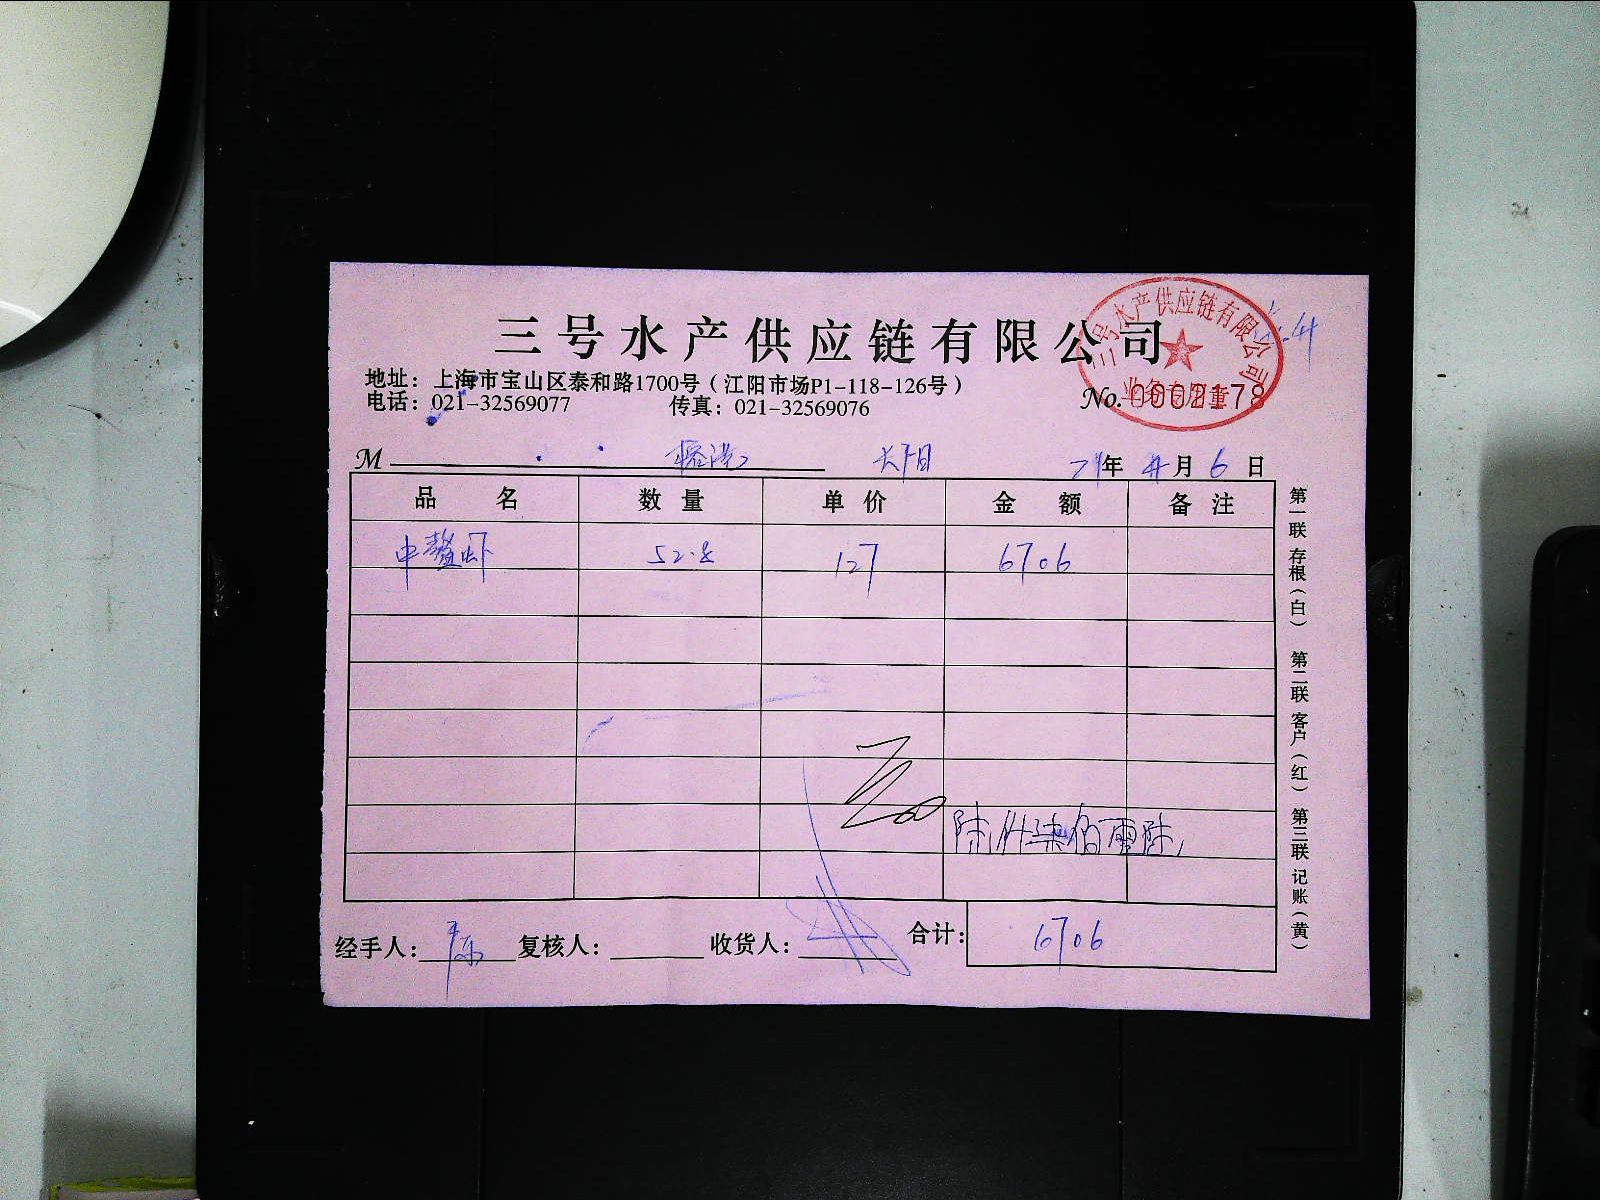 三号水产供应链有限公司
三号水产供应链有限公司
业务专用章
地址：上海市宝山区泰和路1700号（江阳市场P1-118-126号）
电话：021-32569077 传真：021-32569076
No. 0002178
M
年 月 6 日
品名 数量 单价 金额 备注
中鳌虾 52.8 127 6706
陆仟柒佰零陆
经手人： 复核人： 收货人： 合计： 6706
第一联 存根（白） 第二联 客户（红） 第三联 记账（黄）